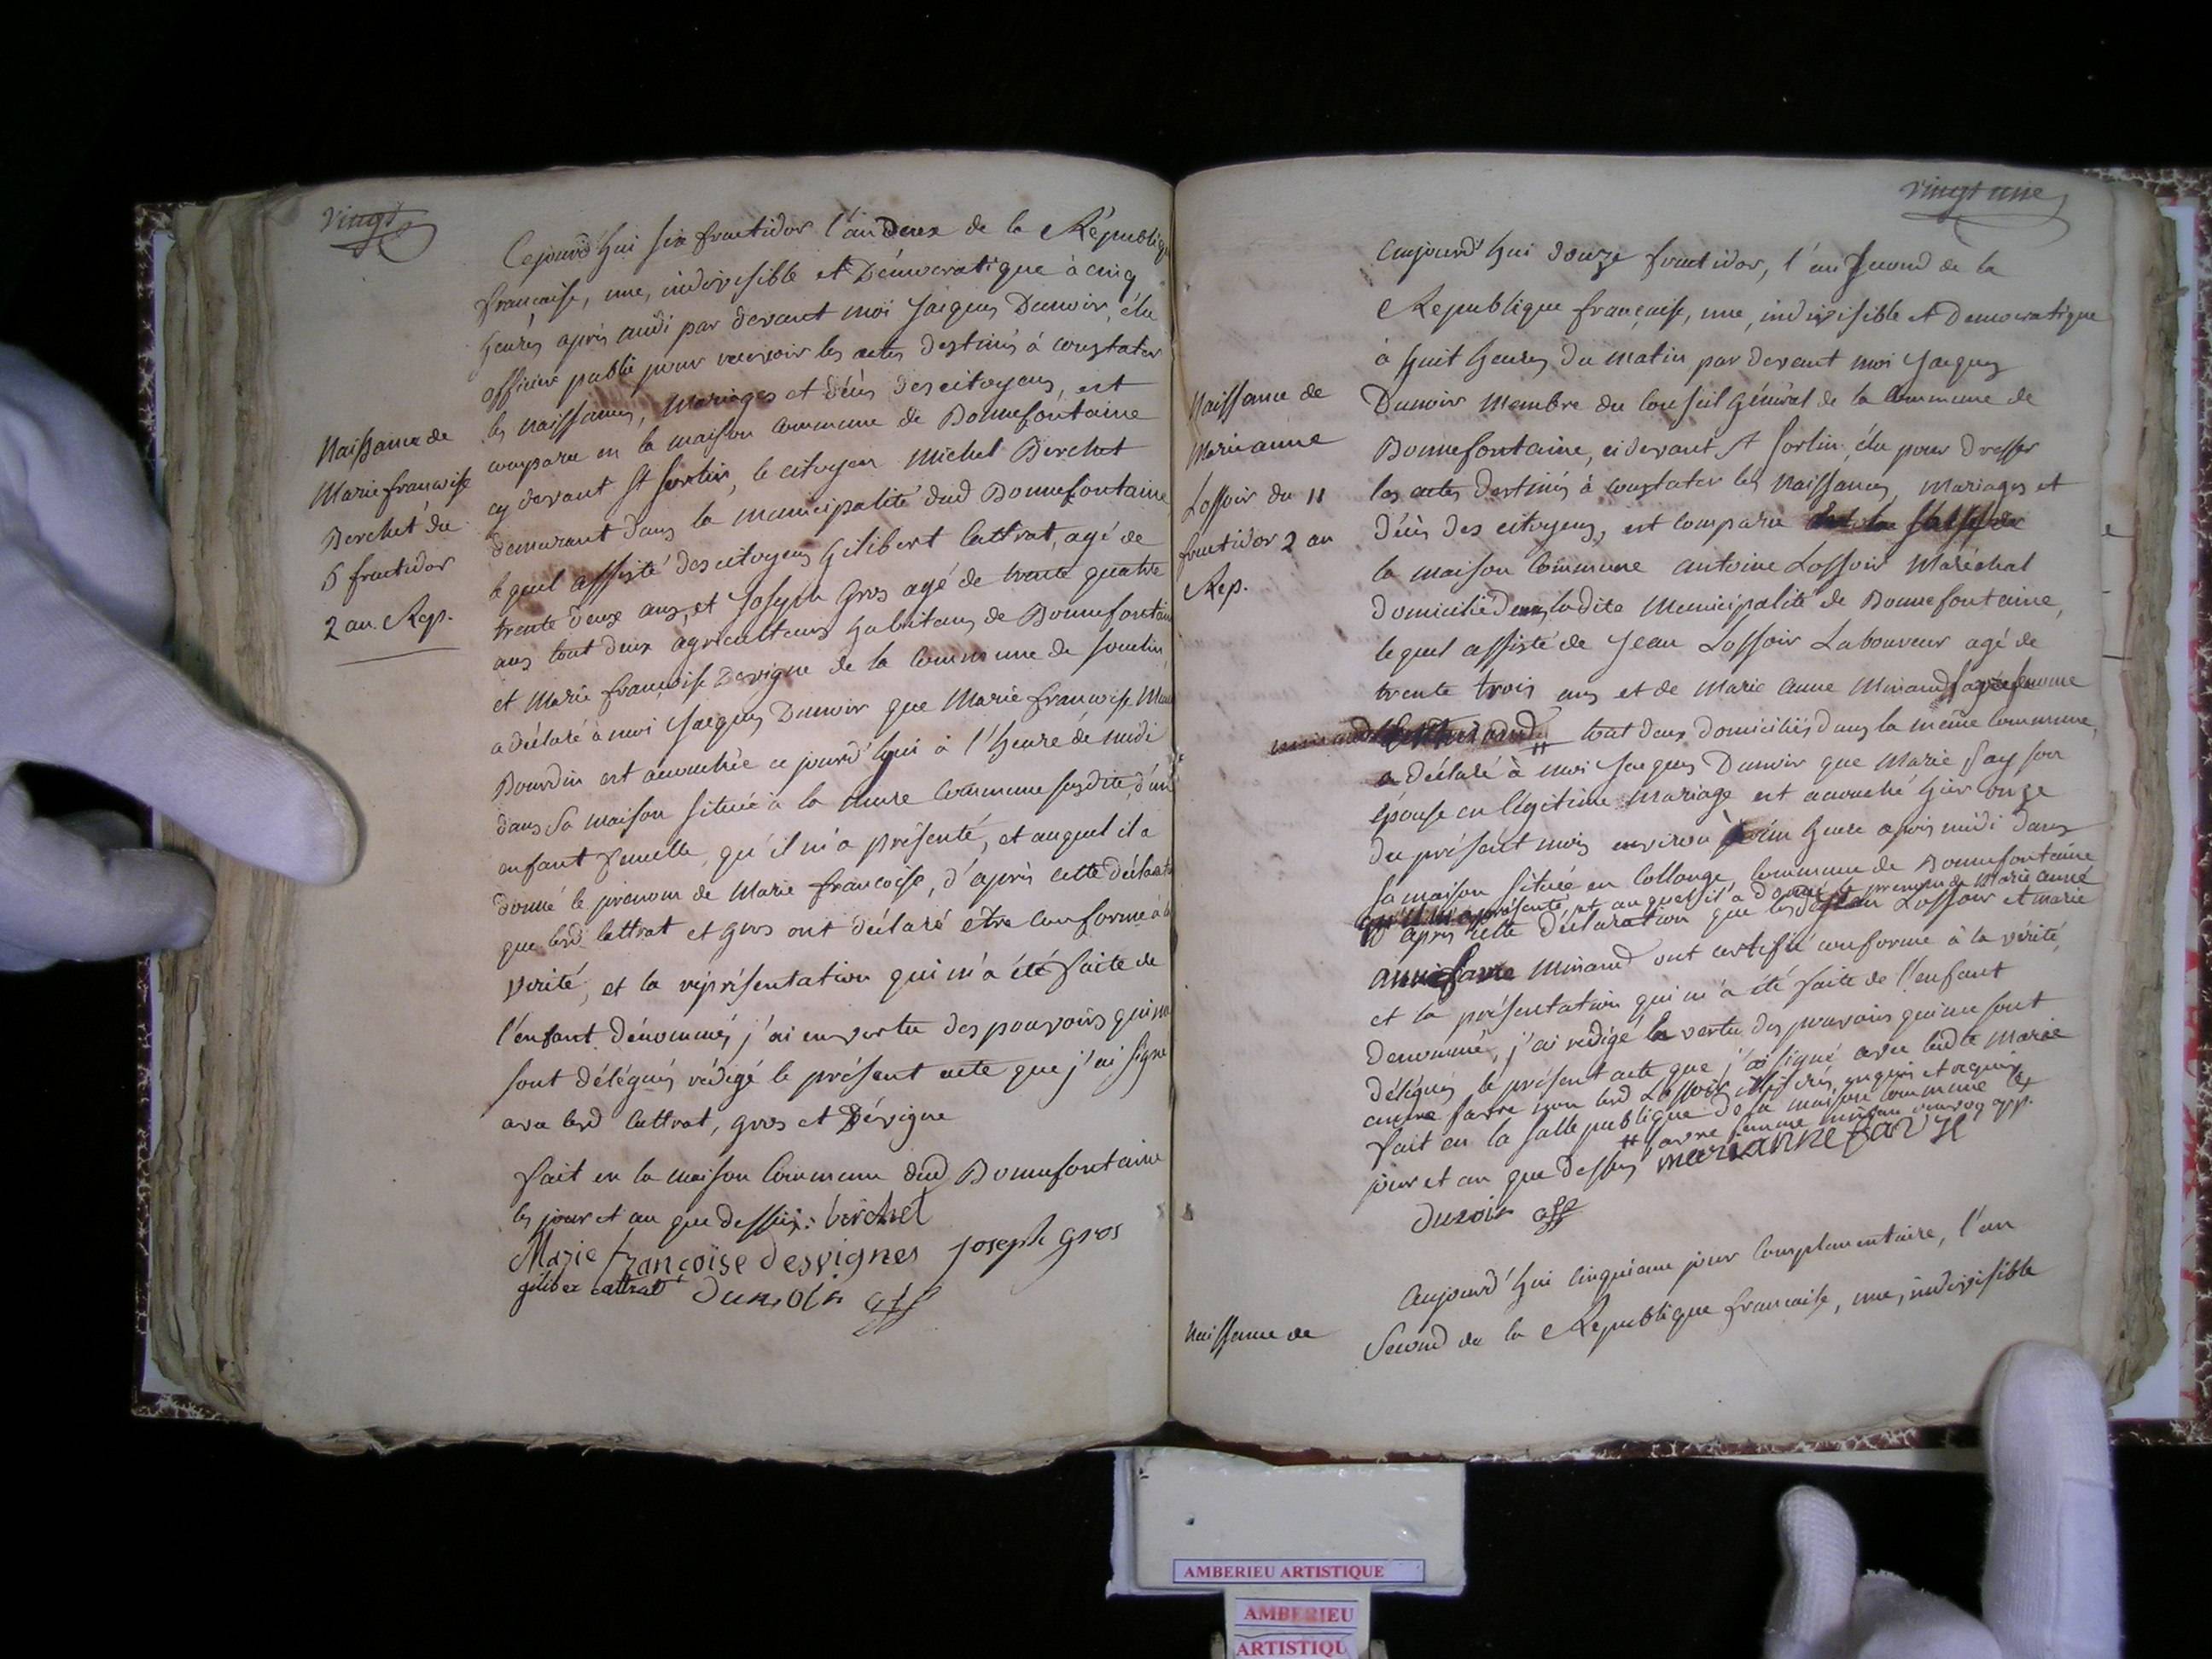 vingt
Cejourd'hui six fructidor l'an Deux de la Républiq
française, une, indivisible et Démocratique à cinq
heures après midi par devant moi Jacques Dunoir, élu
officier public pour recevoir les actes destinés à constater
les naissances, mariages et décès des citoyens, est
comparu en la maison commune de Bonnefontaine
cy devant St Sorlin, le citoyen Michel Berchet
demeurant dans la municipalité dud Bonnefontaine
lequel assisté des citoyens Gilibert Cattrat, agé de
trente deux ans, et Joseph Gros agé de trente quatre
ans tout deux agriculteurs habitans de Bonnefontain
et Marie francoise Devigne de la Commune de
a déclaré à moi Jacques Dunoir que Marie francoise
Bourdin est accouchée ce jourd'hui à l'heure de midi
dans sa maison située à la Commune susdite, d'un
enfant femelle, qu'il m'a présenté, et auquel il a
donné le prenom de Marie francoise, d'après cette déclarat
que lesd Cattrat et Gros ont déclaré etre conforme à la
vérité, et la représentation qui m'a été faite de
l'enfant dénommé, j'ai en vertu des pouvoirs qui m
sont délégués rédigé le présent acte que j'ai signé
avec lesd Cattrat, Gros et Dévigne
fait en la maison Commune dud Bonnefontaine
les jour et an que dessus: berchet
Marie françoise desvignes joseph gros
giliber cattrat dunoir off
Naissance de
Marie francoise
Berchet du
6 fructidor
2 an. Rep.
vingt une
Aujourd'hui douze fructidor, l'an second de la
Republique française, une, indivisible et Democratique
à huit heures du matin, par devant moi Jacques
Dunoir Membre du Conseil Général de la Commune de
Bonnefontaine, ci devant St Sorlin, élu pour dresser
les actes destinés à constater les Naissances, Mariages et
décès des citoyens, est comparu
la maison Commune Antoine Lossoir Maréchal
domicilié dans ladite Municipalité de Bonnefontaine,
lequel assisté de Jean Lossoir Laboureur agé de
trente trois ans et de Marie Anne
tout deux domiciliés dans la même Commune,
a déclaré à moi Jacques Dunoir que Marie Say son
épouse en légitime Mariage est accouché hier onze
du présent mois environ une heure après midi dans
sa maison située en Collonge, Commune de Bonnefontaine
qu'il m'a présenté, et auquel il a donné le prenom de Marie anne
D'après cette déclaration que lesd Jean Lossoir et Marie
anne favre Minand ont certifié conforme à la vérité,
et la présentation qui m'a été faite de l'enfant
denommé, j'ai rédigé en vertu des pouvoirs qui me sont
délégués le présent acte que j'ai signé avec ladte Marie
anne favre non lesd Lossoir illitérés, enquis et requis
fait en la salle publique de la maison commune les
jour et an que dessus
marianne favre
dunoir off
Naissance de
Marie anne
Lossoir du 11
fructidor 2 an
Rep.
Aujourd'hui Cinquieme jour Complementaire, l'an
Naissance de
Second de la République francaise, une, indivisible
AMBERIEU ARTISTIQUE
AMBERIEU
ARTISTIQU